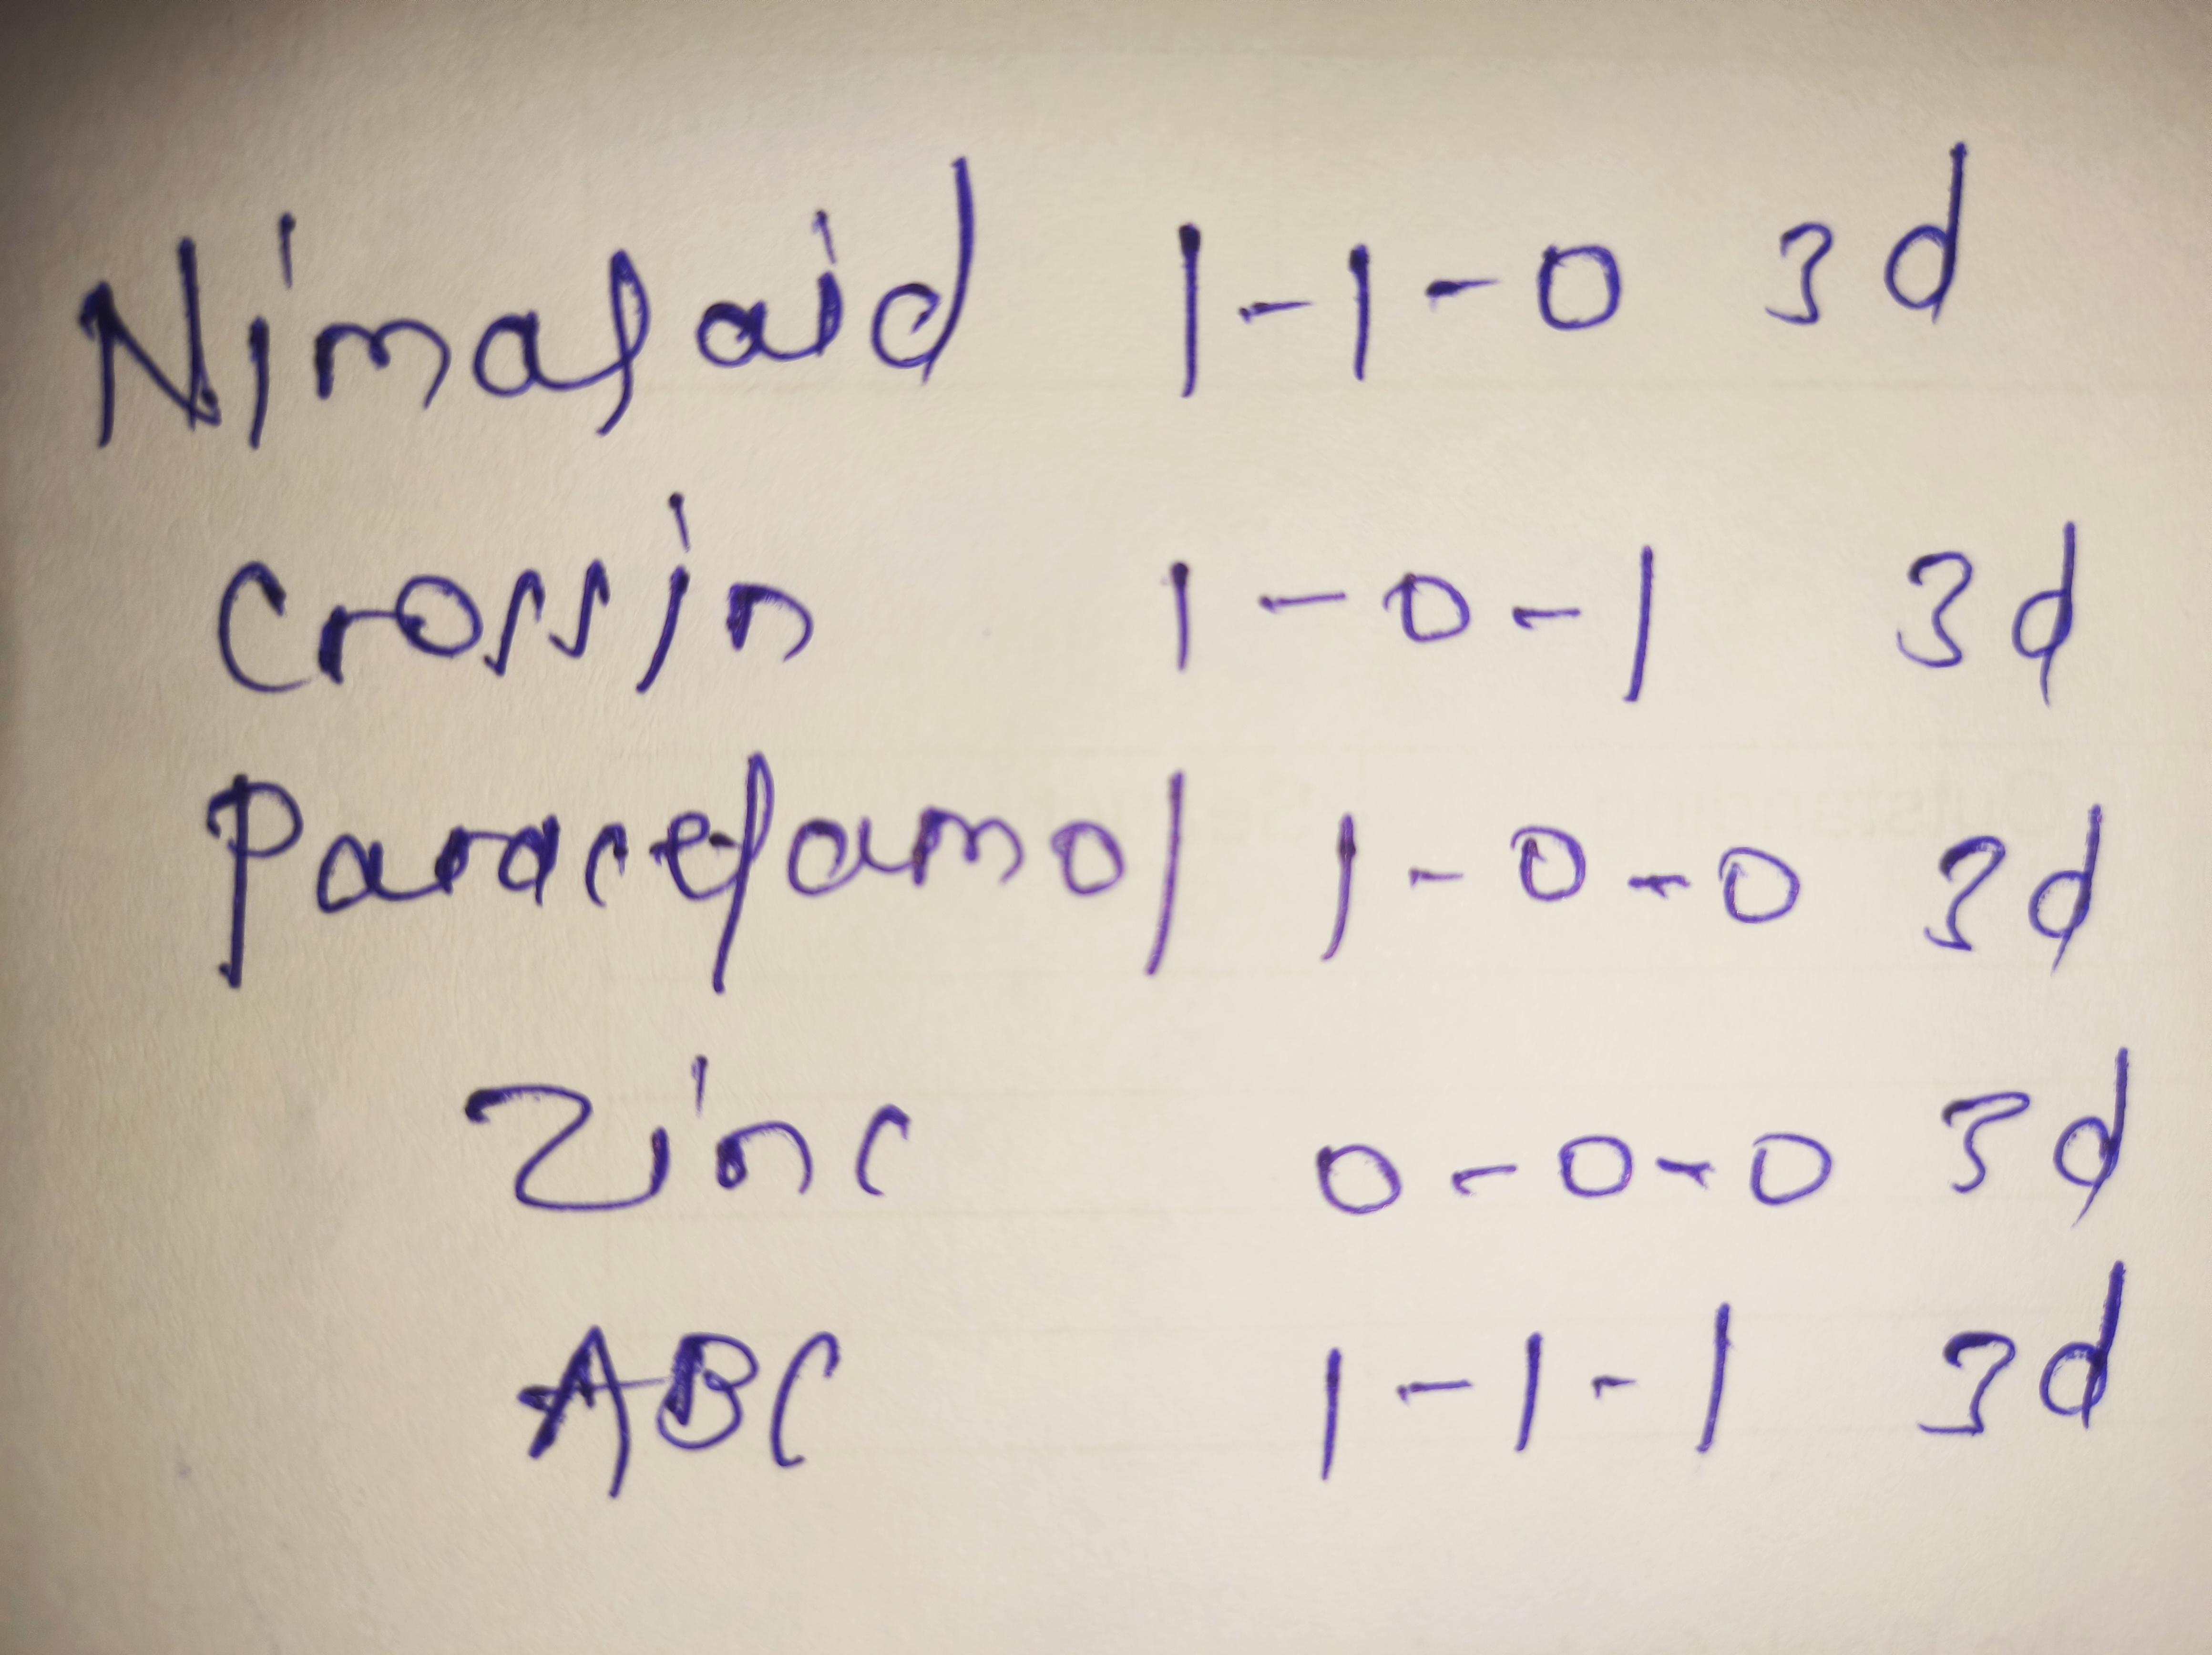 Nimafaid 1-1-0 3d
Crossin 1-0-1 3d
Paracetamol 1-0-0 3d
Zinc 0-0-0 3d
ABC 1-1-1 3d